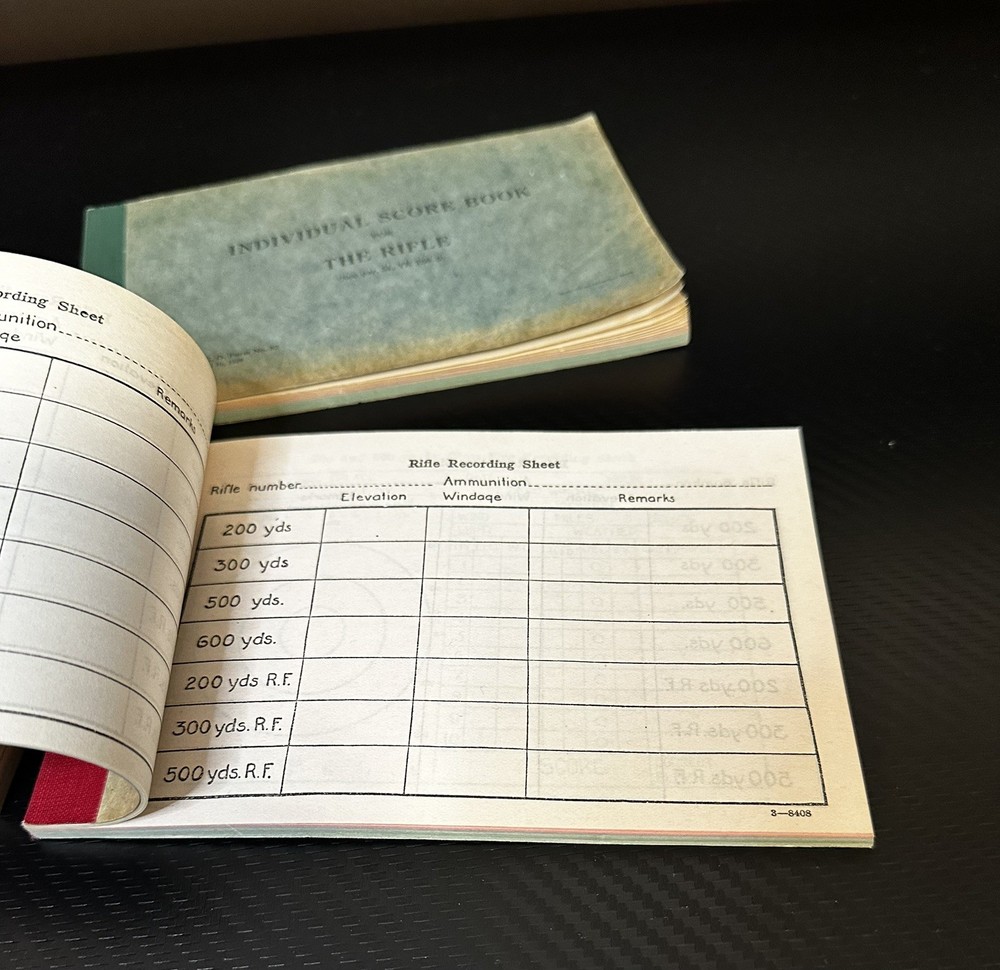 INDIVIDUAL SCORE BOOK
FOR
THE RIFLE
rding Sheet
unition
ge
Remarks
Rifle Recording Sheet
Rifle number
Ammunition
Elevation Windage Remarks
200 yds
300 yds
500 yds.
600 yds.
200 yds R.F.
300 yds. R.F.
500 yds. R.F.
3—8408